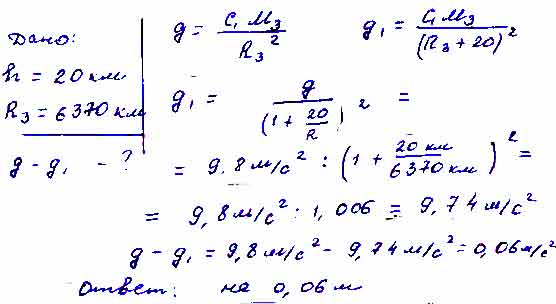 Дано:
h = 20 км
R₃ = 6370 км
g - g₁ - ?
g = G M₃ / R₃²
g₁ = G M₃ / (R₃ + 20)²
g₁ = g / (1 + 20/R)² =
= 9,8 м/с² : (1 + 20 км / 6370 км)² =
= 9,8 м/с² : 1,006 = 9,74 м/с²
g - g₁ = 9,8 м/с² - 9,74 м/с² = 0,06 м/с²
Ответ: на 0,06 м